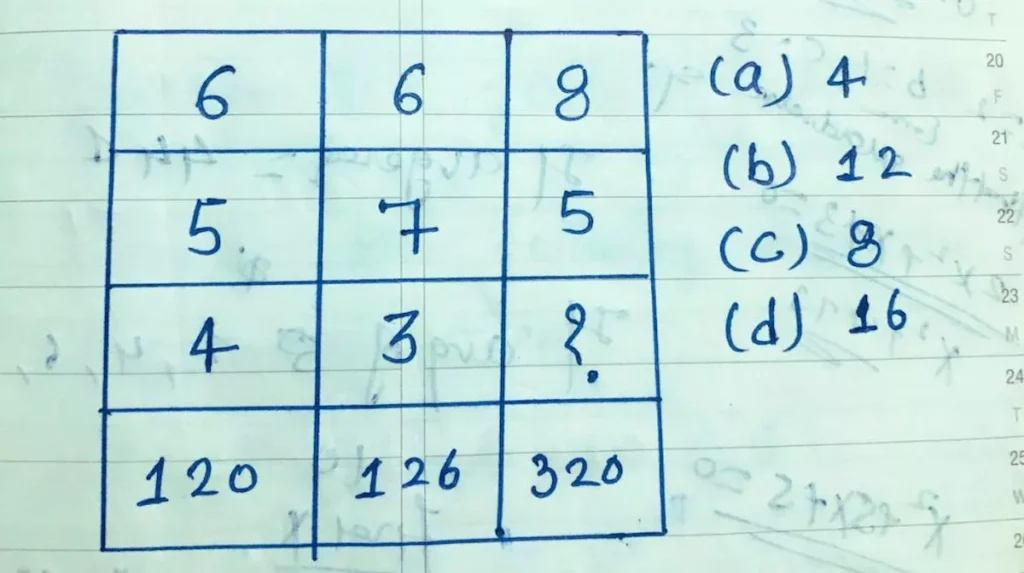 6 6 8 (a) 4
5 7 5 (b) 12
4 3 ? (c) 8
120 126 320 (d) 16
20
F
21
S
22
S
23
M
24
T
25
W
26